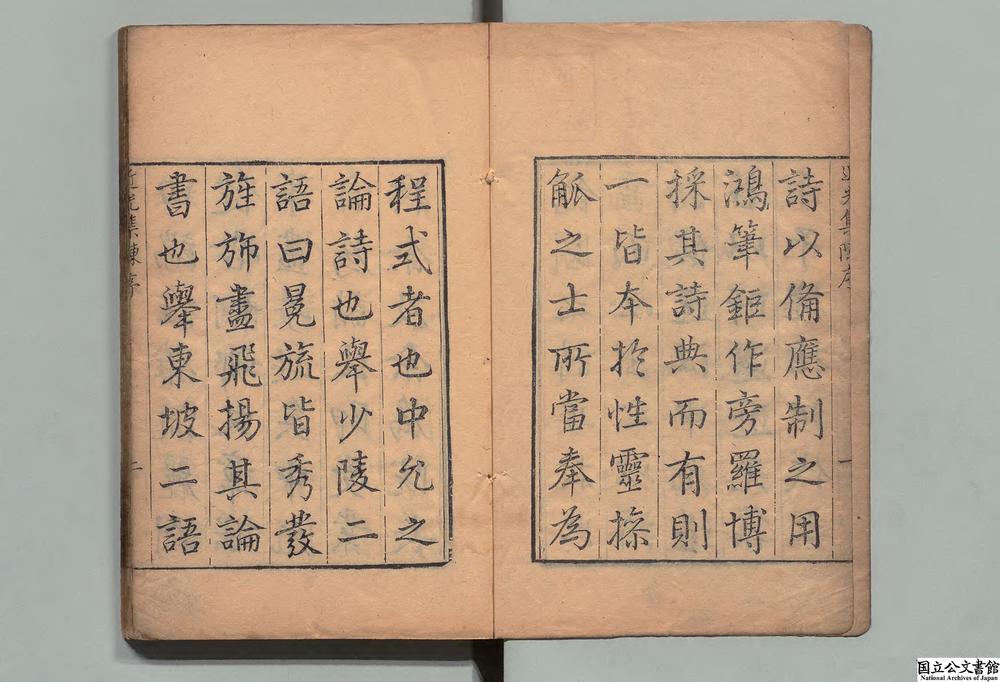 近光集陳序
一
詩以備應制之用
鴻筆鉅作旁羅博
採其詩典而有則
一皆本扵性靈操
觚之士所當奉為
程式者也中允之
論詩也舉少陵二
語曰冕旒皆秀發
旌斾盡飛揚其論
書也舉東坡二語
近光集陳序
二
国立公文書館
National Archives of Japan